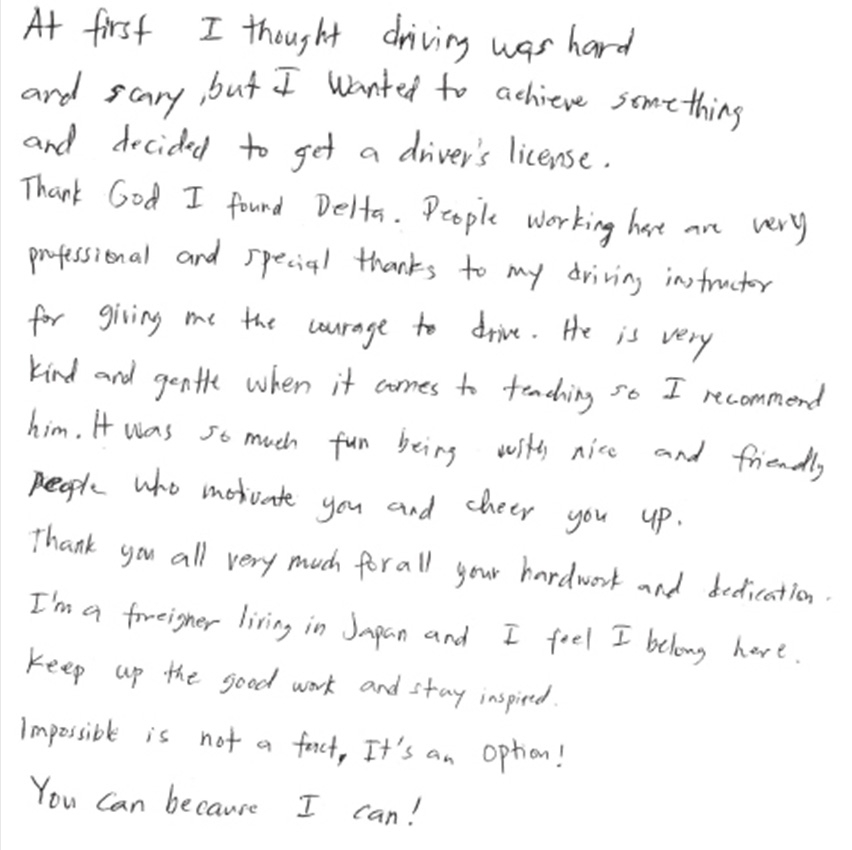 At first I thought driving was hard
and scary, but I wanted to achieve something
and decided to get a driver's license.
Thank God I found Delta. People working here are very
professional and special thanks to my driving instructor
for giving me the courage to drive. He is very
kind and gentle when it comes to teaching so I recommend
him. It was so much fun being with nice and friendly
people who motivate you and cheer you up.
Thank you all very much for all your hardwork and dedication.
I'm a foreigner living in Japan and I feel I belong here.
Keep up the good work and stay inspired.
Impossible is not a fact, It's an option!
You can because I can!